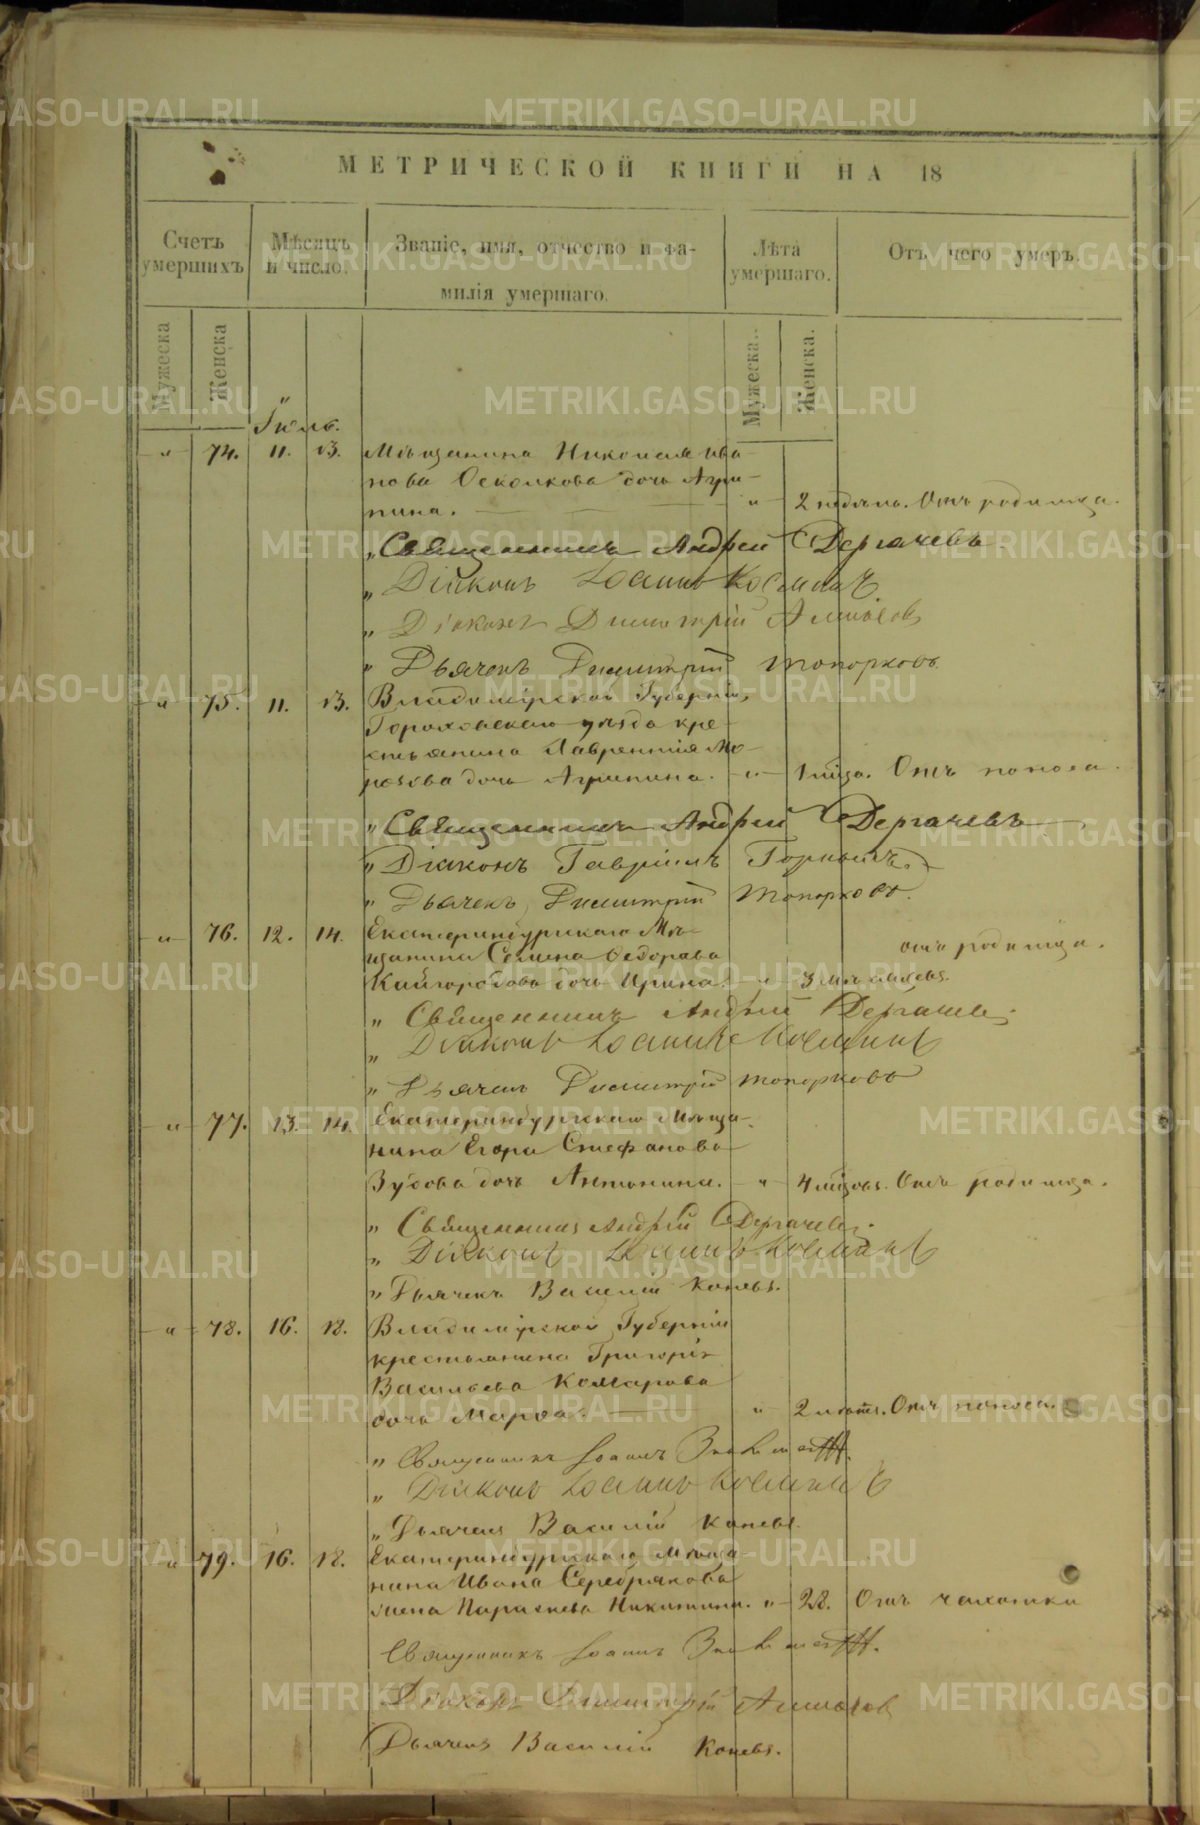 МЕТРИЧЕСКОЙ КНИГИ НА 18
Счетъ умершихъ.
Мѣсяцъ и число.
Званіе, имя, отчество и фамилія умершаго.
Лѣта умершаго.
Отъ чего умеръ.
Мужеска Женска
Мужеска. Женска.
Іюль.
" 74. 11. 13. Мѣщанина Николая Ива-
нова Осколкова дочь Агри-
пина. " 2 недѣль. Отъ родимца.
" Священникъ Андрей Дергачевъ.
" Діаконъ Іоаннъ Космин
" Діаконъ Димитрій
" Дьячекъ Димитрій Топорковъ.
" 75. 11. 13. Владимірской Губерніи,
Гороховскаго уѣзда кре-
стьянина Лаврентія Мо-
розова дочь Агрипина. " 1 мѣца. Отъ поноса.
" Священникъ Андрей Дергачевъ
" Діаконъ Гавріилъ
" Дьячекъ Димитрій Топорковъ.
" 76. 12. 14. Екатеринбургскаго Мѣ-
щанина Семена Федорова отъ родимца.
Кайгородова дочь Ирина. " 3 мѣсяцевъ.
" Священникъ Андрей Дергачевъ.
" Діаконъ Іоаннъ
" Дьячекъ Димитрій Топорковъ
" 77. 13. 14. Екатеринбургскаго Мѣща-
нина Егора Стефанова
Зубова дочь Антонина. " 4 мѣцовъ. Отъ родимца.
" Священникъ Андрей Дергачевъ.
" Діаконъ Іоаннъ
" Дьячекъ Василій Коневъ.
" 78. 16. 18. Владимірской Губерніи
крестьянина Григорія
Васильева Комарова
дочь Марѳа. " 2 лѣтъ. Отъ поноса.
" Священникъ Іоаннъ
" Діаконъ Іоаннъ
" Дьячекъ Василій Коневъ.
" 79. 16. 18. Екатеринбургскаго Мѣща-
нина Ивана Серебрякова
жена Параскева Никитина. " 28. Отъ чахотки
Священникъ Іоаннъ
Діаконъ Димитрій
Дьячекъ Василій Коневъ.
METRIKI.GASO-URAL.RU